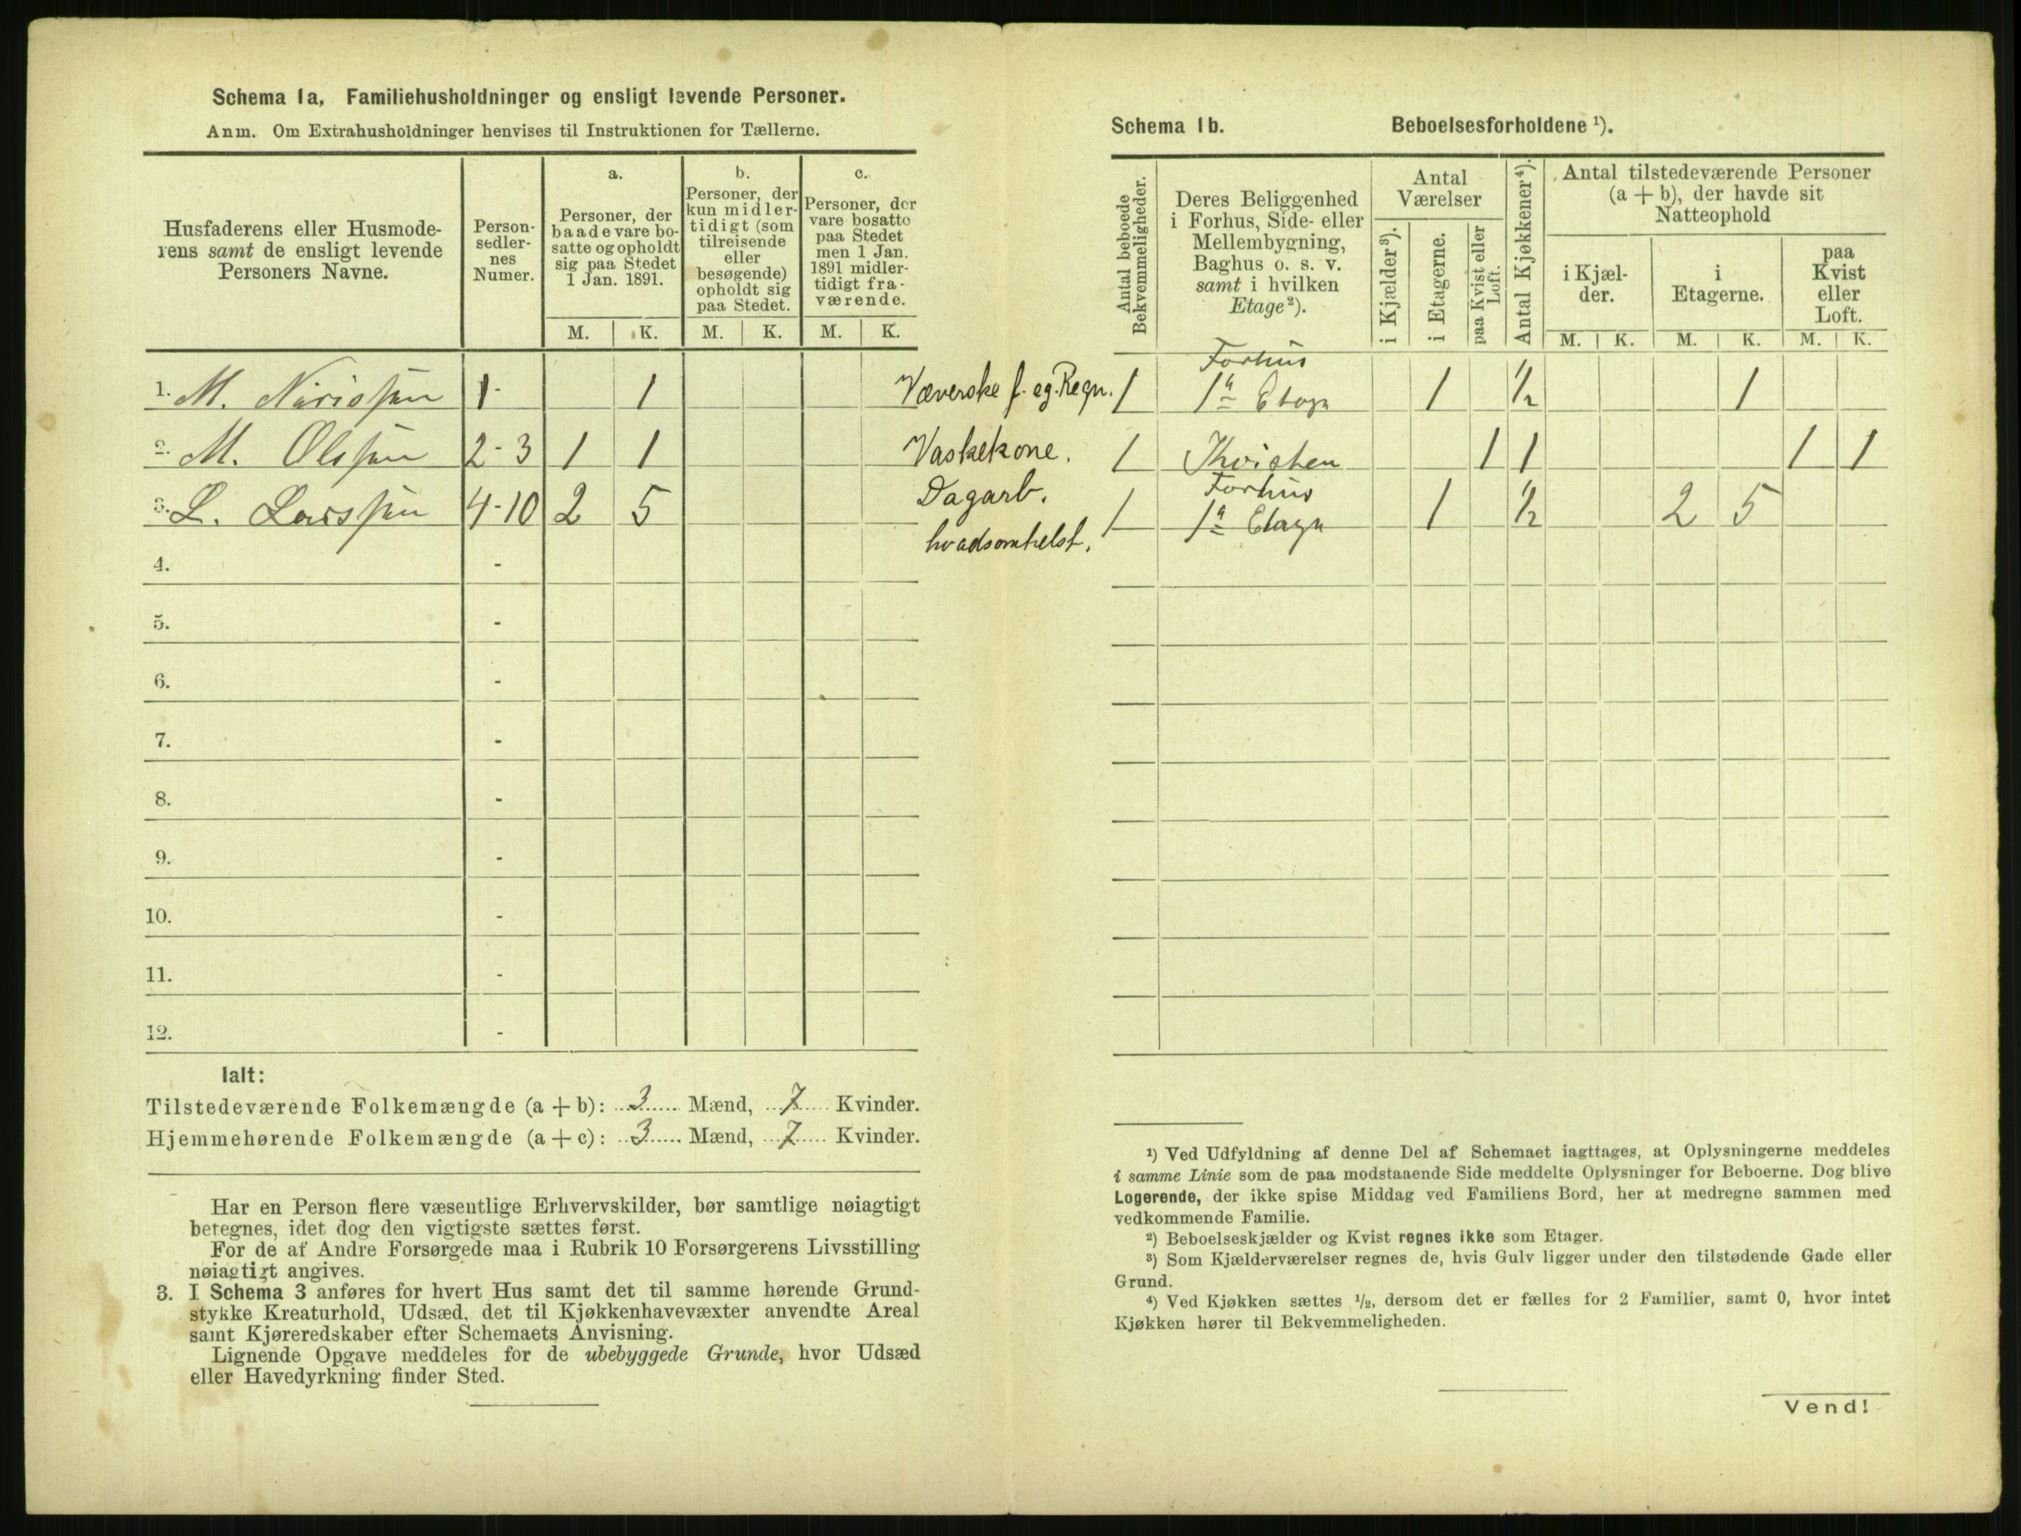 Schema 1a, Familiehusholdninger og ensligt levende Personer.
Anm. Om Extrahusholdninger henvises til Instruktionen for Tællerne.
Husfaderens eller Husmode-
rens samt de ensligt levende
Personers Navne.
Person-
sedler-
nes
Numer.
a.
Personer, der
baade vare bo-
satte og opholdt
sig paa Stedet
1 Jan. 1891.
b.
Personer, der
kun midler-
tidigt (som
tilreisende
eller
besøgende)
opholdt sig
paa Stedet.
c.
Personer, der
vare bosatte
paa Stedet
men 1 Jan.
1891 midler-
tidigt fra-
værende.
M. K. M. K. M. K.
1. M. 1- 1 Væverske f. eg. Regn.
2. M. Olsſen 2-3 1 1 Vaskekone.
3. L. Larsſen 4-10 2 5 Dagarb.
hvadsomhelst.
4. -
5. -
6. -
7. -
8. -
9. -
10. -
11. -
12. -
Ialt:
Tilstedeværende Folkemængde (a + b): 3 Mænd, 7 Kvinder.
Hjemmehørende Folkemængde (a + c): 3 Mænd, 7 Kvinder.
Har en Person flere væsentlige Erhvervskilder, bør samtlige nøiagtigt
betegnes, idet dog den vigtigste sættes først.
For de af Andre Forsørgede maa i Rubrik 10 Forsørgerens Livsstilling
nøiagtigt angives.
3. I Schema 3 anføres for hvert Hus samt det til samme hørende Grund-
stykke Kreaturhold, Udsæd, det til Kjøkkenhavevæxter anvendte Areal
samt Kjøreredskaber efter Schemaets Anvisning.
Lignende Opgave meddeles for de ubebyggede Grunde, hvor Udsæd
eller Havedyrkning finder Sted.
Schema 1b. Beboelsesforholdene ¹).
Antal beboede
Bekvemmeligheder.
Deres Beliggenhed
i Forhus, Side- eller
Mellembygning,
Baghus o. s. v.
samt i hvilken
Etage²).
Antal
Værelser
i Kjælder³).
i Etagerne.
paa Kvist eller
Loft.
Antal Kjøkkener⁴).
Antal tilstedeværende Personer
(a + b), der havde sit
Natteophold
i Kjæl-
der.
i
Etagerne.
paa
Kvist
eller
Loft.
M. K. M. K. M. K.
Forhus
1 1ª Etage 1 ½ 1
1 Kvisten 1 1 1 1
Forhus
1 1ª Etage 1 ½ 2 5
¹) Ved Udfyldning af denne Del af Schemaet iagttages, at Oplysningerne meddeles
i samme Linie som de paa modstaaende Side meddelte Oplysninger for Beboerne. Dog blive
Logerende, der ikke spise Middag ved Familiens Bord, her at medregne sammen med
vedkommende Familie.
²) Beboelseskjælder og Kvist regnes ikke som Etager.
³) Som Kjælderværelser regnes de, hvis Gulv ligger under den tilstødende Gade eller
Grund.
⁴) Ved Kjøkken sættes ½, dersom det er fælles for 2 Familier, samt 0, hvor intet
Kjøkken hører til Bekvemmeligheden.
Vend!